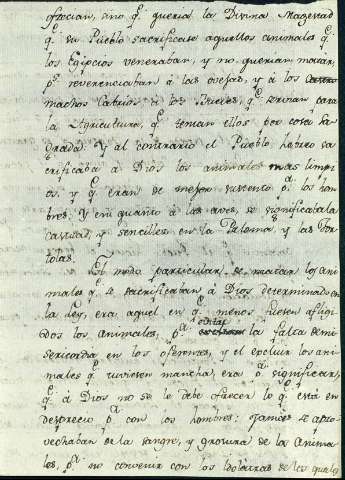 ofrecian, sino q.e queria la Divina Magestad
q.e su Pueblo sacrificase aquellos animales q.e
los Egipcios veneraban, y no querian matar,
p.s reverenciaban á las ovejas, y á los
machos Cabrios á los Bueies, q.e servian para
la Agricultura, q.e tenian ellos por cosa sa
grada. Y al contrario el Pueblo hebreo sa
crificaba á Dios los animales mas limpi
os, y q.e eran de mejor sustento p.a los hom
bres. Y en quanto á las aves, se significaba la
castidad, y sencilles en la Paloma, y las Tor
tolas.
El modo particular de matar los ani
males q.e se sacrificaban á Dios determinado en
la Ley, era aquel en q.e menos fuesen afligi
dos los animales, p.a evitar la falta de mi
sericordia en los oferentes, y el excluir los ani
males q.e tuviesen mancha, era p.a significar,
q.e á Dios no se le debe ofrecer lo q.e está en
desprecio p.a con los hombres: jamas se apro
vechaban de la sangre, y grosura de los anima
les, p.a no convenir con los idolatras de los quales